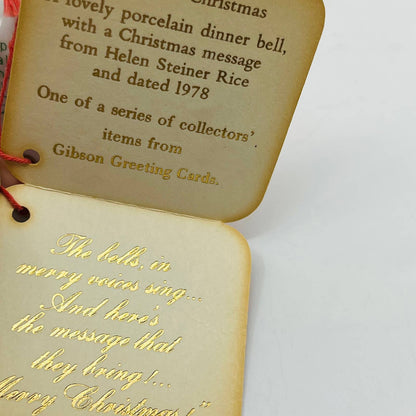 Christmas
lovely porcelain dinner bell,
with a Christmas message
from Helen Steiner Rice
and dated 1978
One of a series of collectors'
items from
Gibson Greeting Cards.
The bells, in
merry voices sing...
And here's
the message that
they bring!...
Merry Christmas!"